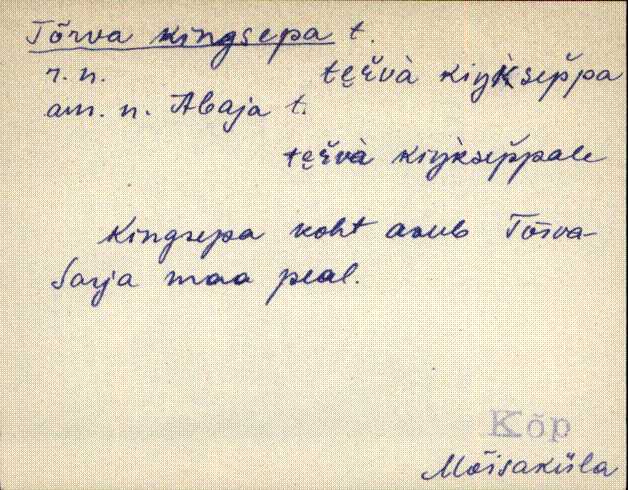 Tõrva kingsepa t.
r. n. tęr̆và kiŋ̀ksep̆pa
am. n. Abaja t.
tęr̆và kiŋ̀ksep̆pale
Kingsepa koht asub Tõrva-
Sarja maa peal.
Kõp
Mõisaküla